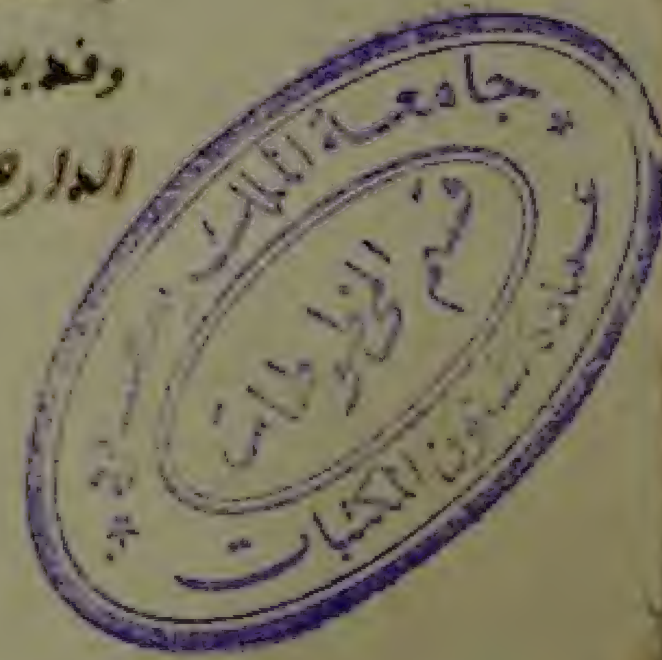 وقد
جامعة الملك سعود
قسم المخطوطات
عمادة شؤون المكتبات